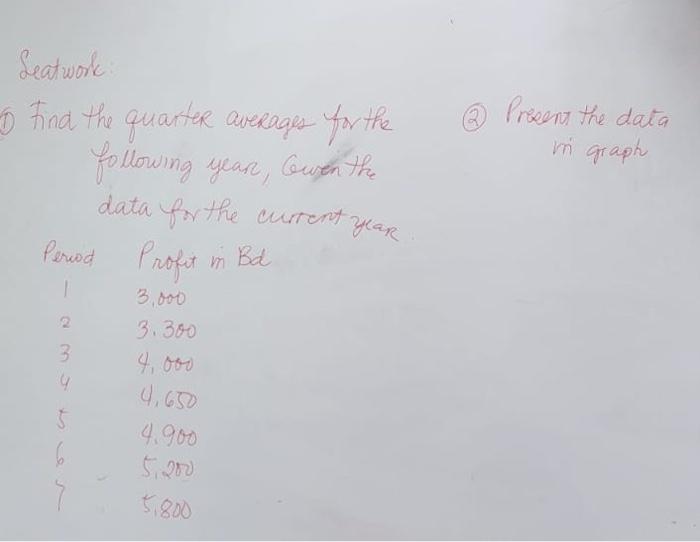 Seatwork:
① Find the quarter averages for the
following year, Given the
data for the current year.
Period Profit in Bd
1 3,000
2 3.300
3 4,000
4 4,650
5 4.900
6 5,200
7 5,800
② Present the data
in graph